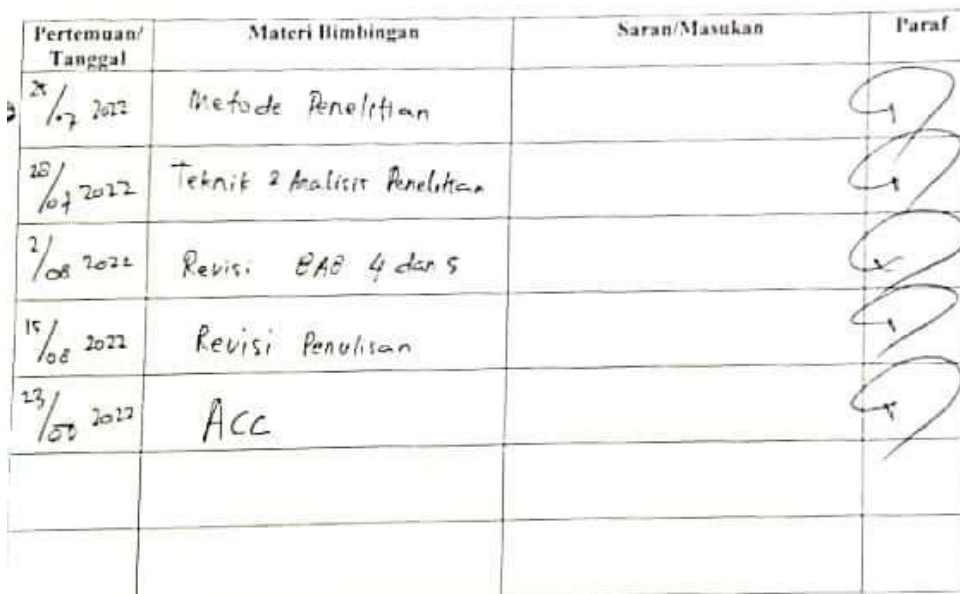 Pertemuan/ Tanggal Materi Bimbingan Saran/Masukan Paraf
/07 2022 Metode Penelitian
28/07 2022 Teknik 2 Analisis Penelitian
2/08 2022 Revisi BAB 4 dan 5
15/08 2022 Revisi Penulisan
23/08 2022 ACC